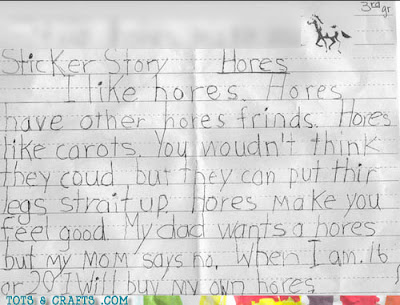 3rd gr
Sticker Story Hores
I like hores. Hores
have other hores frinds. Hores
like carots. You woudn't think
they coud but they can put thir
legs strait up. Hores make you
feel good. My dad wants a hores
but my mom says no. When I am 16
or 20 I will buy my own hores
TOTS & CRAFTS .COM